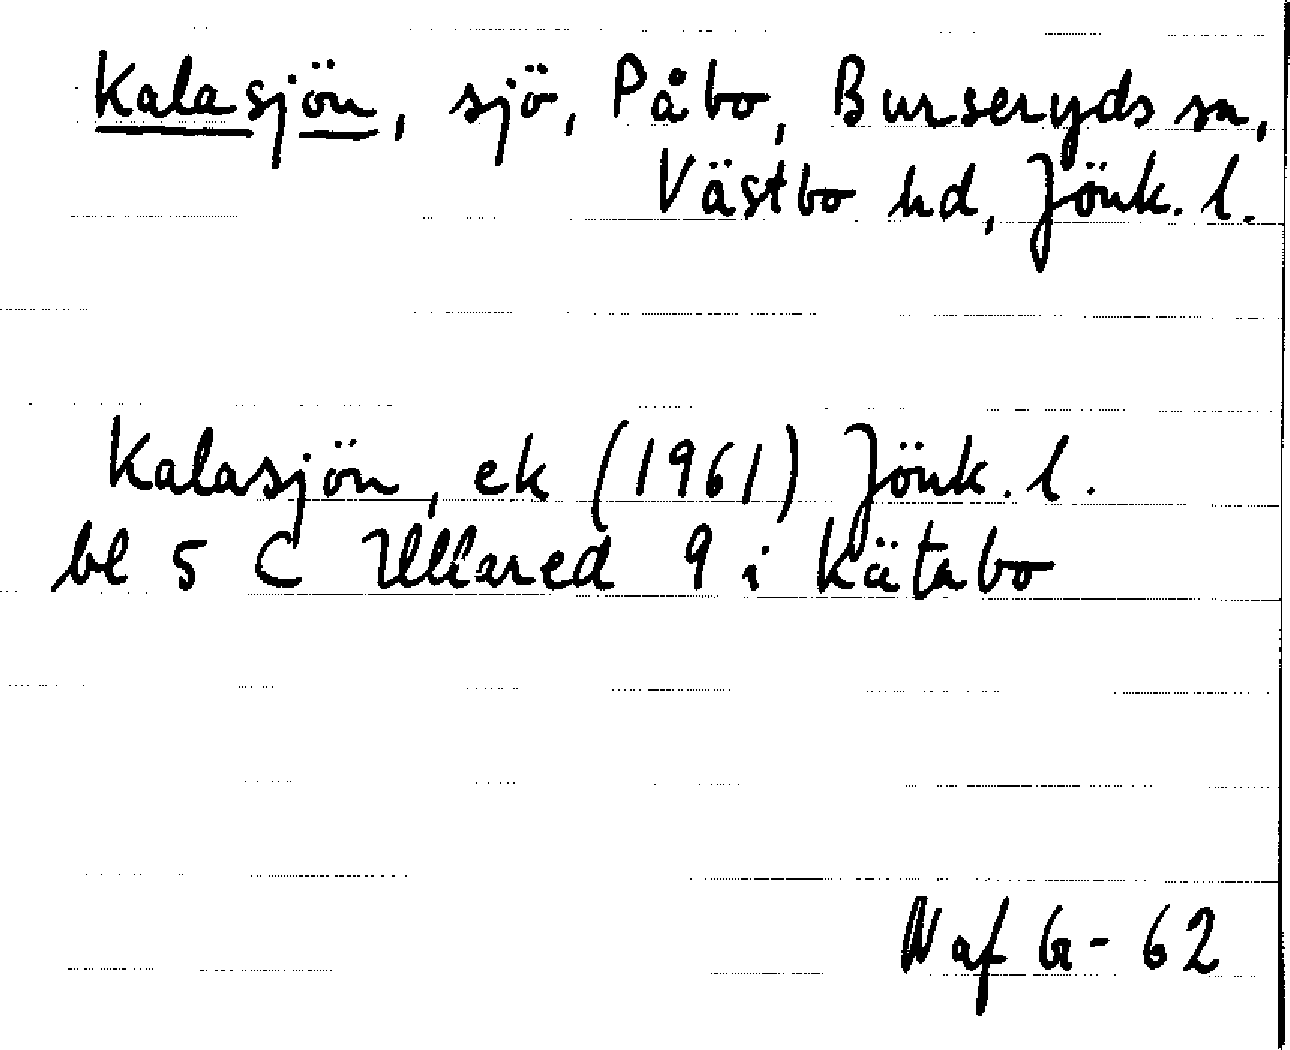 Kalasjön, sjö, Påbo, Burseryds sn,
Västbo hd, Jönk. l.
Kalasjön, ek (1961) Jönk. l.
bl 5 C Ullared 9 i Kätabo
N af G-62